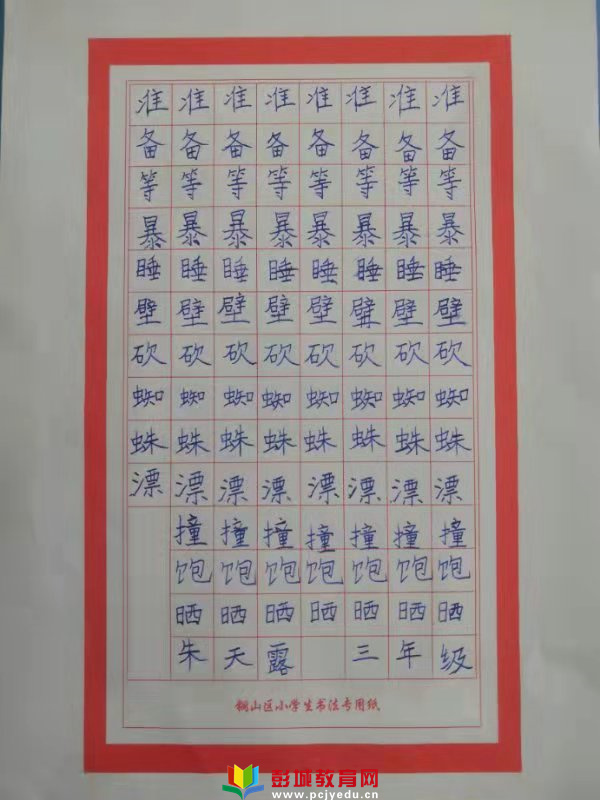 准准准准准准准准
备备备备备备备备
等等等等等等等等
暴暴暴暴暴暴暴暴
睡睡睡睡睡睡睡睡
壁壁壁壁壁壁壁壁
砍砍砍砍砍砍砍砍
蜘蜘蜘蜘蜘蜘蜘蜘
蛛蛛蛛蛛蛛蛛蛛蛛
漂漂漂漂漂漂漂漂
撞撞撞撞撞撞撞
饱饱饱饱饱饱饱
晒晒晒晒晒晒晒
朱天露 三年级
铜山区小学生书法专用纸
彭城教育网
www.pcjyedu.cn